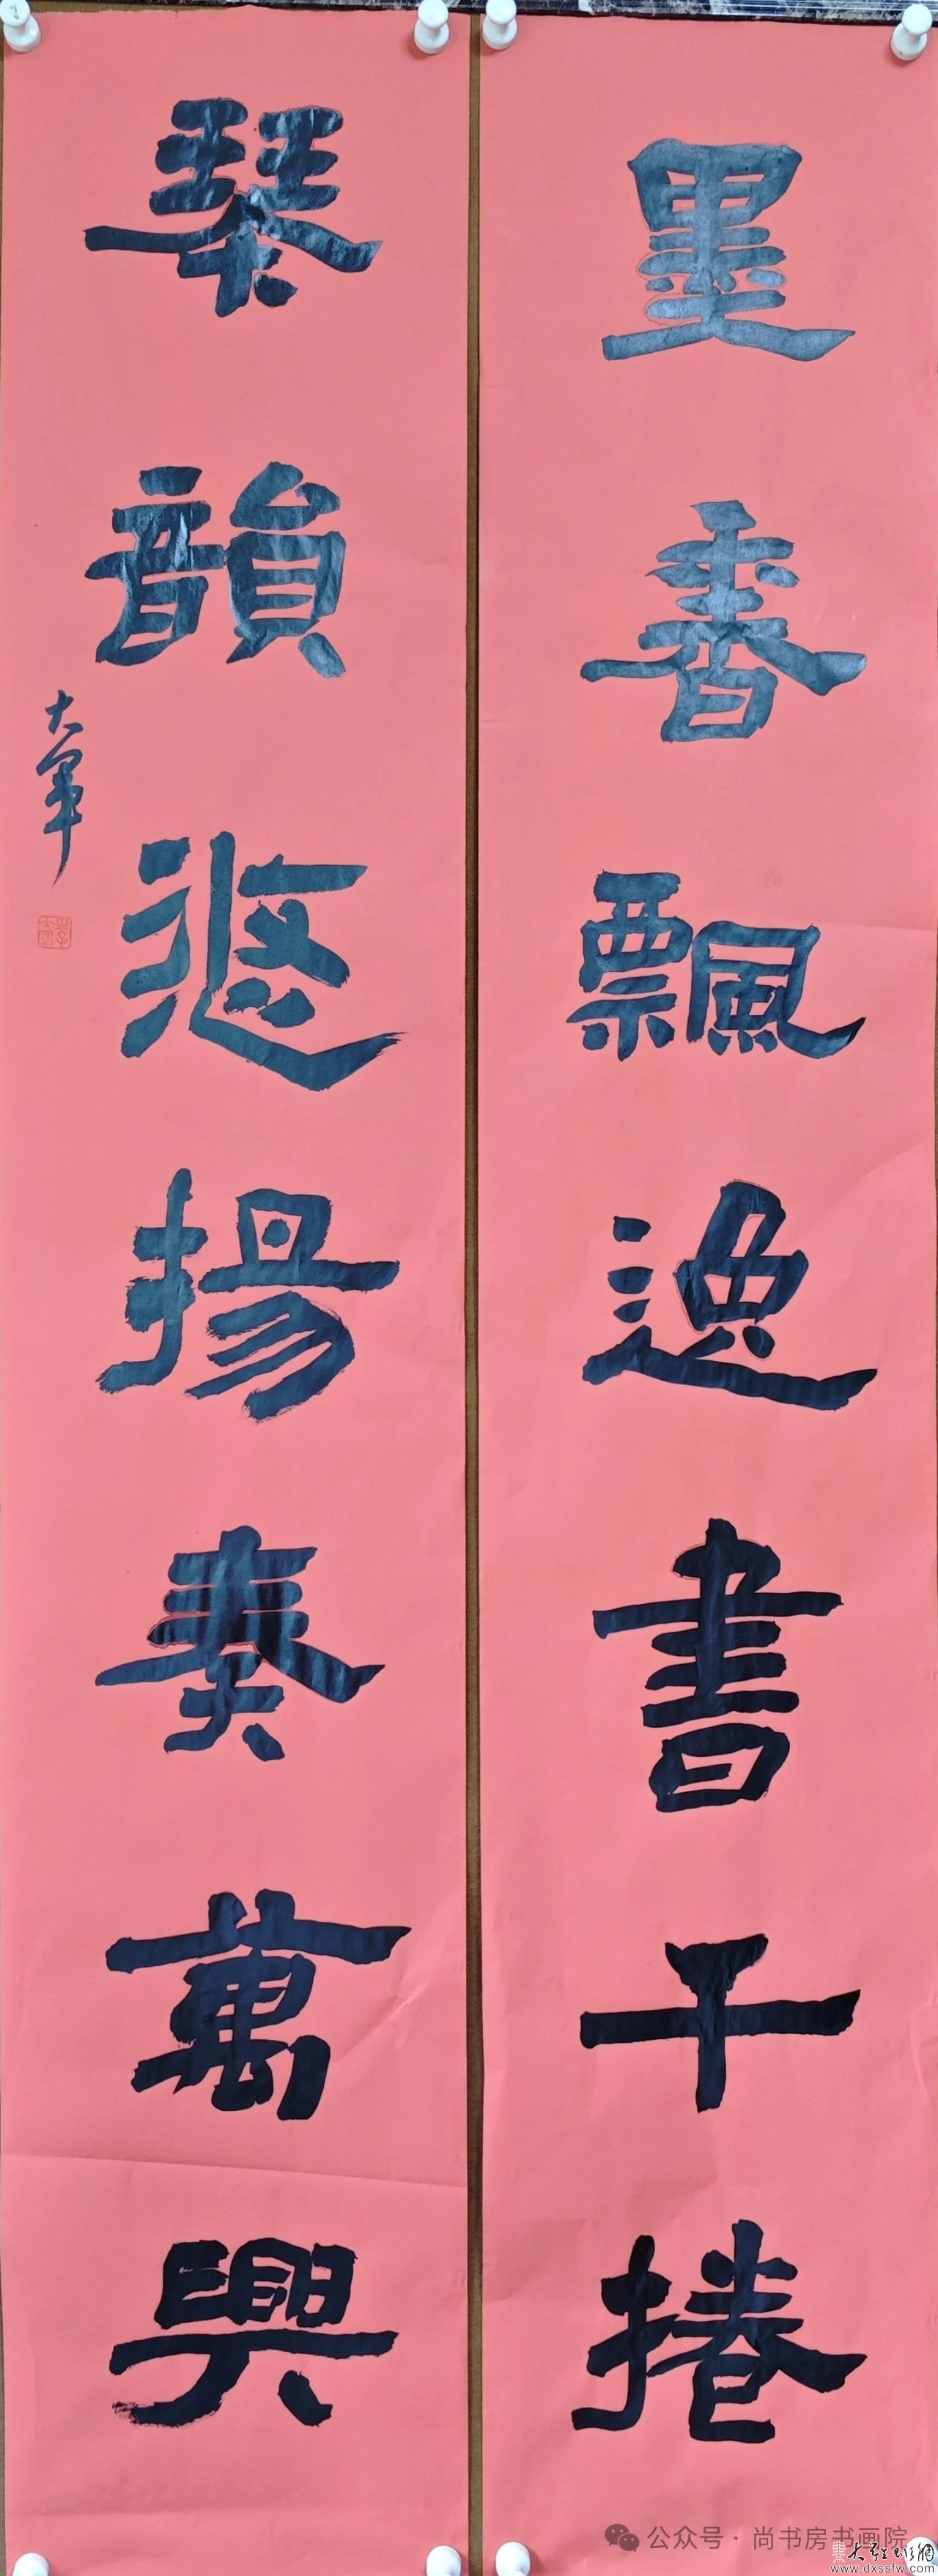 墨香飄逸書千捲
琴韻悠揚奏萬興
大軍
公众号 · 尚书房书画院
www.dxssfw.com